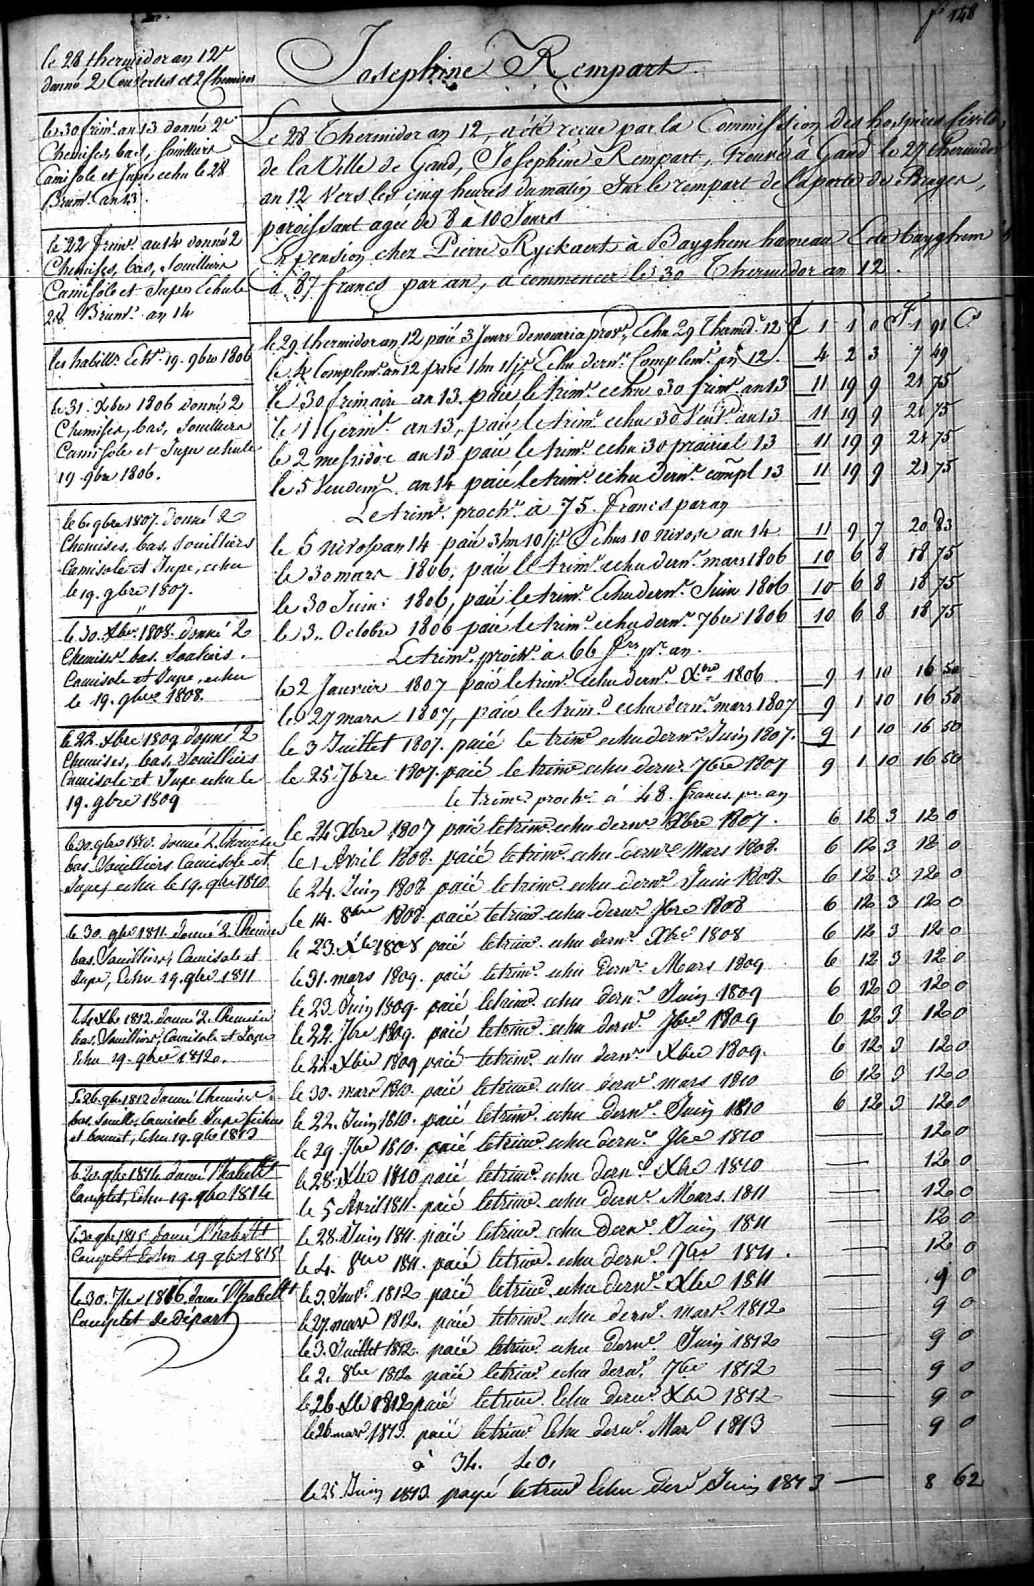 f° 148
Josephine Rempart
le 28 thermidor an 12
donné 2 Couvertes et 2 Chemises
le 30 frim.e an 13 donné 2
Chemises, bas, souilliers
Camisole et Jupe echu le 28
Brum.e an 13.
le 22 frim.e an 14 donné 2
Chemises, bas, souilliers
Camisole et Jupe Echu le
28 Brum.e an 14
les habill.s Echu 19. 9bre 1806
le 31. Xbre 1806 donné 2
Chemises, bas, souilliers
Camisole et Jupe echu le
19. 9bre 1806.
le 6. 9bre 1807. donné 2
Chemises, bas, souilliers
Camisole et Jupe, echu
le 19. 9bre 1807.
le 30. Xbre 1808. donné 2
Chemises bas. Souliers.
Camisole et Jupe, echu
le 19. 9bre 1808.
le 22. Xbre 1809 donné 2
Chemises, bas, souilliers
Camisole et Jupe echu le
19. 9bre 1809
le 30. 9bre 1810. donné 2. Chemises
bas. Souilliers Camisole et
Jupe, echu le 19. 9bre 1810
le 30. 9bre 1811. donné 2. Chemises
bas. Souilliers, Camisole et
Jupe, Echu 19. 9bre 1811
Xbre 1812. donné 2. Chemises
bas, Souilliers, Camisole et Jupe
Echu 19. 9bre 1812.
Le 26. 9bre 1812 donné Chemises
bas, Souill., Camisole Jupe fichu
et bonnet, Echu 19. 9bre 1813
le 20. 9bre 1814 donné l'habill.t
Complet, Echu 19. 9bre 1814
9bre 1815 donné l'habill.t
Complet Echu 19 9bre 1815
le 30. 7bre 1816. donné l'habill.t
Complet de départ
Le 28 Thermidor an 12, a été reçue par la Commission des hospices Civils
de la Ville de Gand, Josephine Rempart, Trouvée à Gand le 27 Thermidor
an 12 vers les cinq heures du matin sur le rempart de la porte de Bruges,
paroissant agée de 8 à 10 Jours
En pension chez Pierre Ryckaert à Bayghem hameau de bayghem
à 87 francs par an, a commencer le 30 Thermidor an 12.
le 29 thermidor an 12 paié 3 Jours Echu 29 Thermid. 12 1 1 0 1 91
le 4 Complem.e an 12 paié 1 m Echu dern.r Complem.e an 12. 4 2 3 7 49
le 30 frimaire an 13. paié le trim.e echu 30 frim.e an 13 11 19 9 21 75
le 11 Germ.l an 13, paié le trim.e echu 30 Vent.e an 13 11 19 9 21 75
le 2 messidor an 13 paié le trim.e echu 30 prairial 13 11 19 9 21 75
le 5 Vendem.e an 14 paié le trim.e echu dern.r compl 13 11 19 9 21 75
Le trim.e proch.n à 75. francs par an
le 5 nivose an 14 paié 3 m 10 j.s Echus 10 nivose an 14 11 9 7 20 83
le 30 mars 1806, paié le trim.e echu dern.r mars 1806 10 6 8 18 75
le 30 Juin 1806, paié le trim.e Echu dern.r Juin 1806 10 6 8 18 75
le 3. Octobre 1806 paié le trim.e echu dern.r 7bre 1806 10 6 8 18 75
Le trim.e proch.n à 66 f.rs p.r an.
le 2 Janvier 1807 paié le trim.e Echu dern.r Xbre 1806 9 1 10 16 50
le 27 mars 1807, paié le trim.e echu dern.r mars 1807 9 1 10 16 50
le 3 Juillet 1807. paié le trim.e echu dern.r Juin 1807. 9 1 10 16 50
le 25. 7bre 1807. paié le trim.e echu dern.r 7bre 1807 9 1 10 16 50
le trim.e proch.n à 48. francs p.r an
le 24 Xbre 1807 paié le trim.e echu dern.r Xbre 1807. 6 12 3 12 0
le 1 Avril 1808. paié le trim.e echu dern.r Mars 1808. 6 12 3 12 0
le 24. Juin 1808 paié le trim.e echu dern.r Juin 1808 6 12 3 12 0
le 14. 8bre 1808. paié le trim.e echu dern.r 7bre 1808 6 12 3 12 0
le 23. Xbre 1808 paié le trim.e echu dern.r Xbre 1808 6 12 3 12 0
le 31. mars 1809. paié le trim.e echu dern.r Mars 1809 6 12 3 12 0
le 23. Juin 1809. paié le trim.e echu dern.r Juin 1809 6 12 0 12 0
le 22. 7bre 1809. paié le trim.e echu dern.r 7bre 1809 6 12 3 12 0
le 22. Xbre 1809 paié le trim.e echu dern.r Xbre 1809. 6 12 3 12 0
le 30. mars 1810. paié le trim.e echu dern.r mars 1810 6 12 3 12 0
le 22. Juin 1810. paié le trim.e echu dern.r Juin 1810 6 12 3 12 0
le 29. 7bre 1810. paié le trim.e echu dern.r 7bre 1810 12 0
le 28. Xbre 1810 paié le trim.e echu dern.r Xbre 1810 12 0
le 5 Avril 1811. paié le trim.e echu dern.r Mars. 1811 12 0
le 28. Juin 1811. paié le trim.e echu dern.r Juin 1811 12 0
le 4. 8bre 1811. paié le trim.e echu dern.r 7bre 1811. 12 0
le 3. Janv.r 1812 paié le trim.e echu dern.r Xbre 1811 9 0
le 27 mars 1812. paié le trim.e echu dern.r mars 1812 9 0
le 3. Juillet 1812. paié le trim.e echu dern.r Juin 1812 9 0
le 2. 8bre 1812 paié le trim.e echu dern.r 7bre 1812 9 0
le 26 Xbre 1812 paié le trim.e Echu dern.r Xbre 1812 9 0
le 26 mars 1813. paié le trim.e Echu dern.r Mars 1813 9 0
à 34. 50.
le 25 Juin 1813 payé le trim.e Echu der.r Juin 1813 8 62